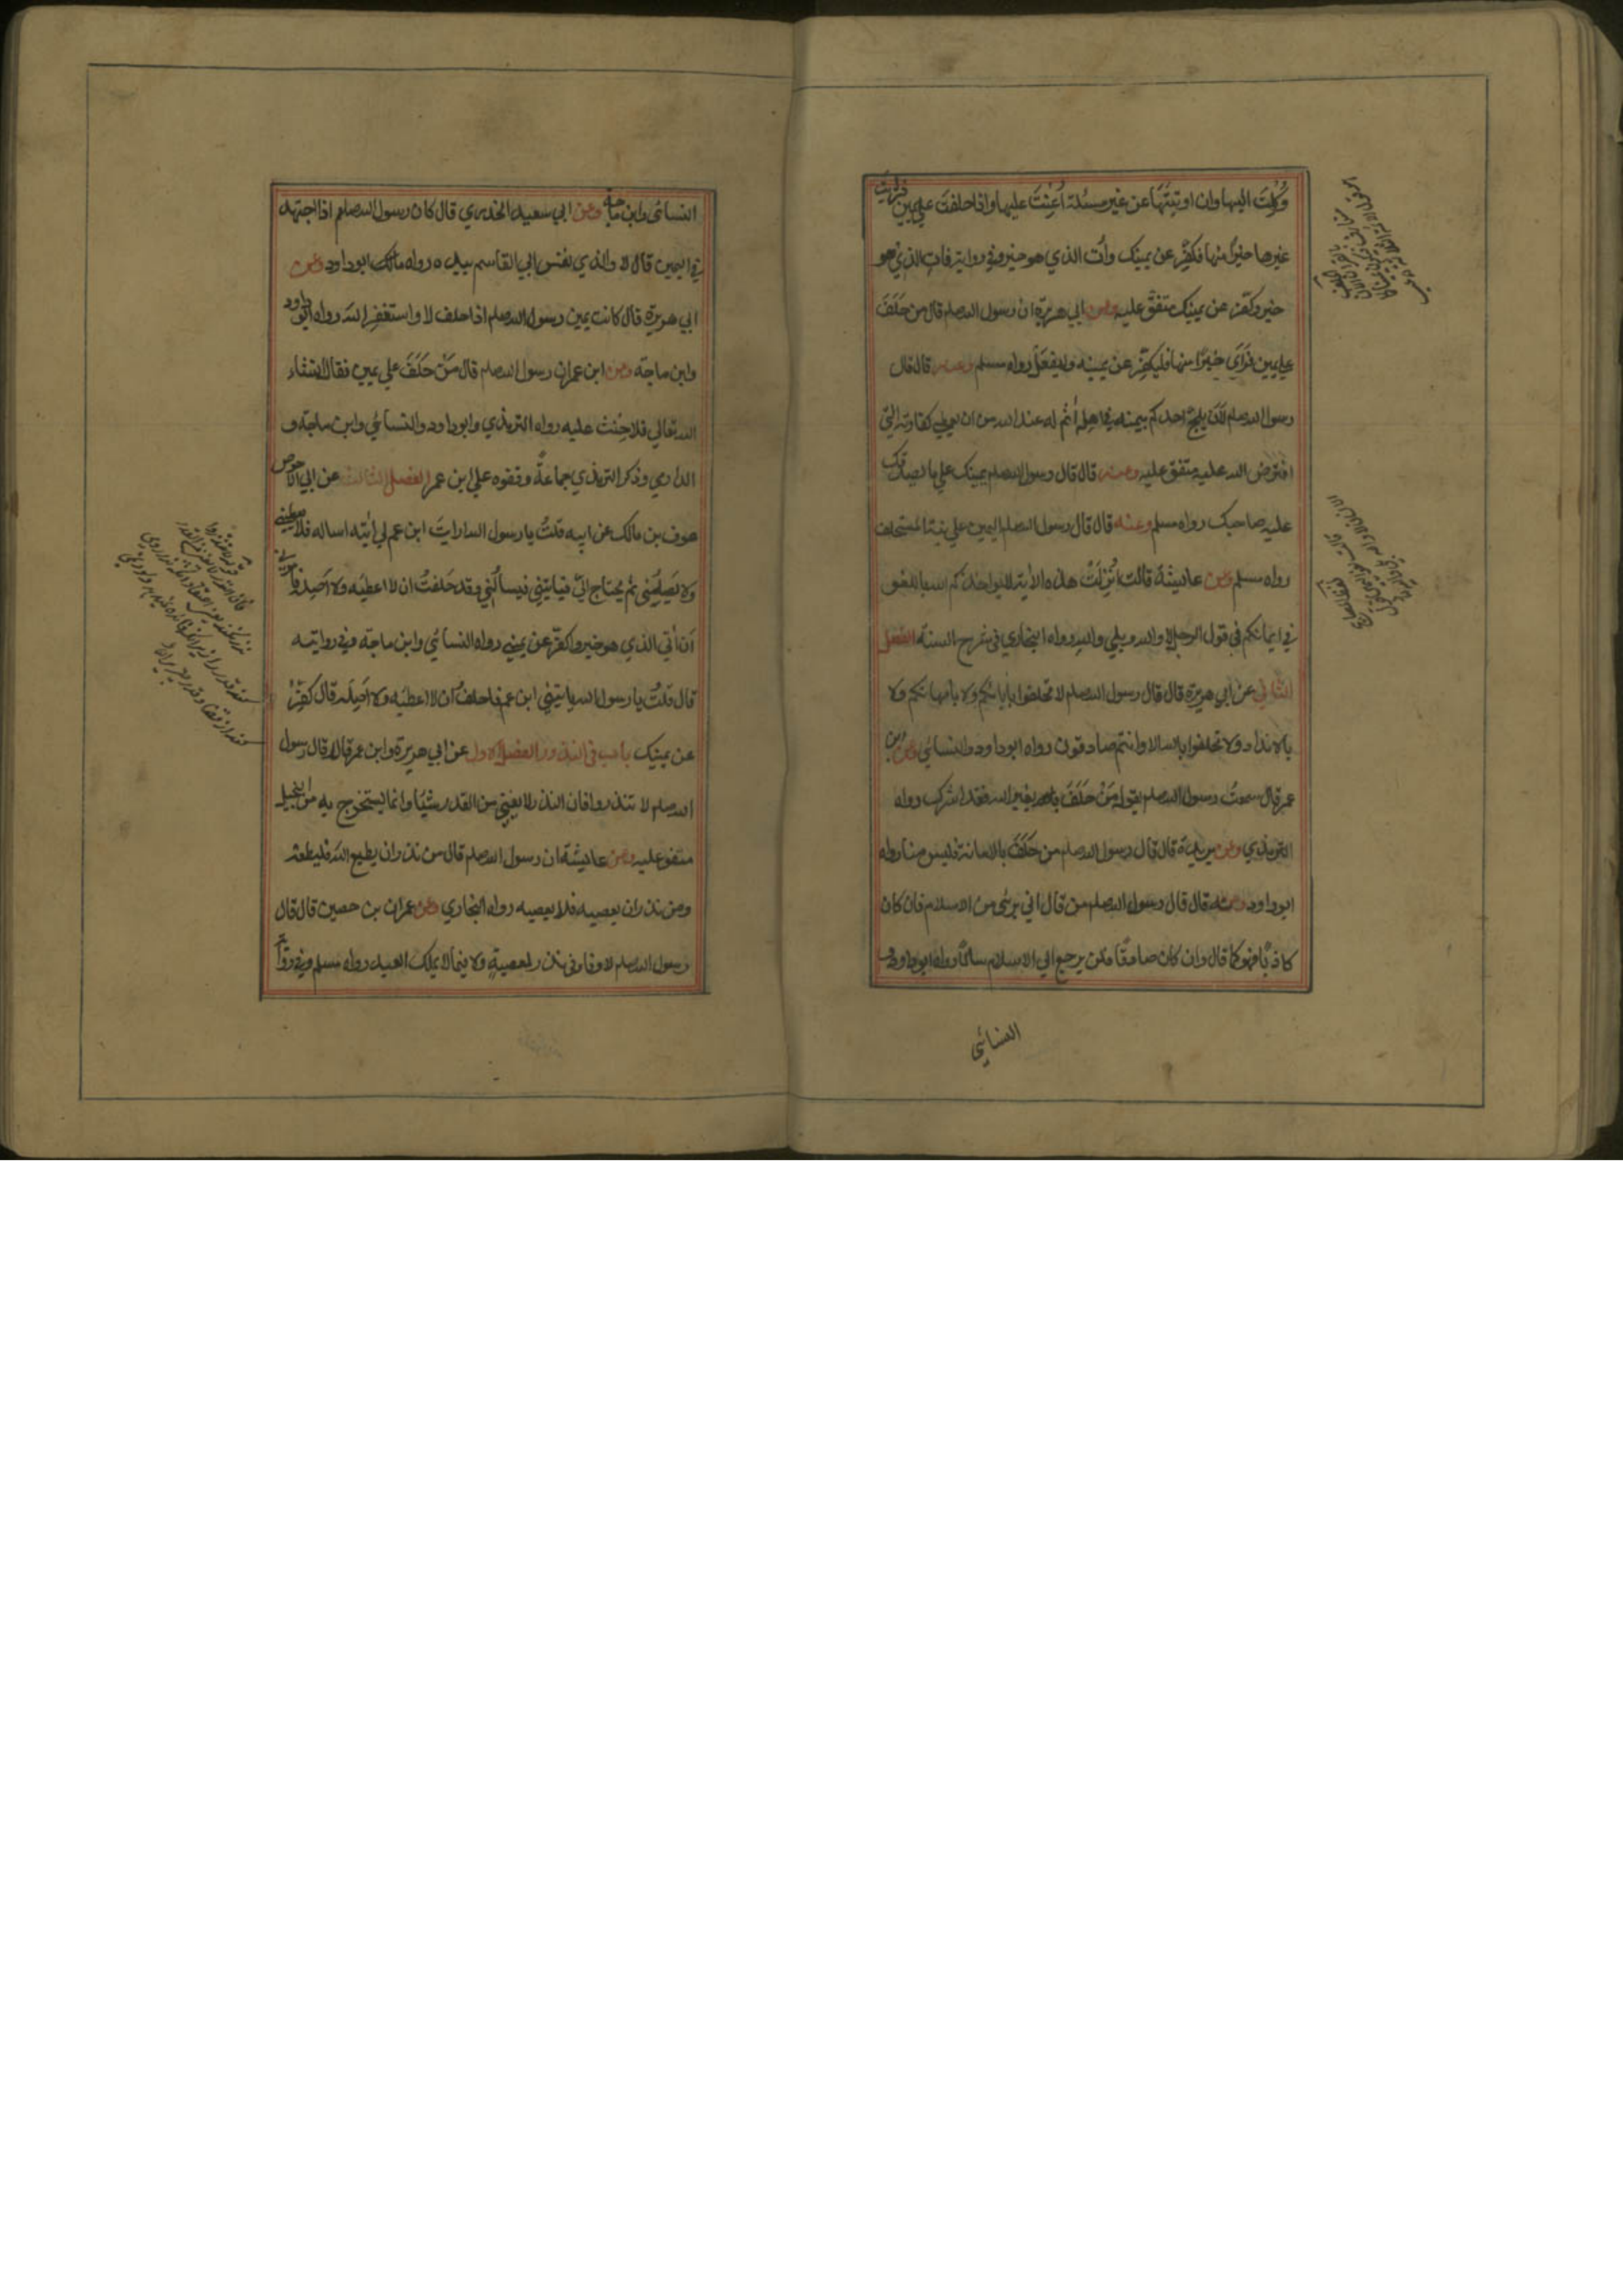 وُكِلْتَ اليها وان اوتيتَها عن غير مسئلة اُعِنْتَ عليها واذا حلفتَ علي يمين فرايت
غيرها خيرًا منها فكفِّر عن يمينك وأت الذي هو خير وفي رواية فات الذي هو
خير وكفّر عن يمينك متفق عليه وعن ابي هريرة ان رسول الله صلم قال من حَلَفَ
علي يمين فَرَأَي خيرًا منها فليكفِّر عن يمينه وليفعَلْ رواه مسلم وعنه قال قال
رسول الله صلم لَاَن يلجَّ احدكم بيمينه في اهله أثم له عند الله من ان يعطي كفارته التي
افترض الله عليه متفق عليه وعنه قال قال رسول الله صلم يمينك علي ما يصدقك
عليه صاحبك رواه مسلم وعنه قال قال رسول الله صلم اليمين علي نية المستحلف
رواه مسلم وعن عايشة قالت اُنْزِلَتْ هذه الأية لا يواخذكم الله باللغو
في ايمانكم في قول الرجل لا والله وبلي والله رواه البخاري في شرح السنة الفصل
الثاني عن ابي هريرة قال قال رسول الله صلم لا تحلفوا بأبائكم ولا بأمهاتكم ولا
بالانداد ولا تحلفوا بالله الا وانتم صادقون رواه ابوداود والنسائي وعن ابن
عمر قال سمعتُ رسول الله صلم يقول مَنْ حَلَفَ بغير الله فقد اشرك رواه
الترمذي وعن بريدة قال قال رسول الله صلم من حَلَفَ بالامانة فليس منا رواه
ابوداود وعنه قال قال رسول الله صلم من قال اني برئى من الاسلام فان كان
كاذبًا فهو كما قال وان كان صادقًا فلن يرجع الي الاسلام سالمًا رواه ابوداود و
النسائي
النسائى وابن ماجة وعن ابي سعيد الخدري قال كان رسول الله صلم اذا اجتهد
في اليمين قال لا والذي نفس ابي القاسم بيده رواه ابوداود وعن
ابي هريرة قال كانت يمين رسول الله صلم اذا حلف لا واستغفر الله رواه ابوداود
وابن ماجة وعن ابن عمر ان رسول الله صلم قال مَنْ حَلَفَ علي يمين فقال ان شاء
الله تعالي فلا حِنْث عليه رواه الترمذي وابوداود والنسائي وابن ماجة و
الدارمي وذكر الترمذي جماعةً وقفوه علي ابن عمر الفصل الثالث عن ابي الاحوص
عوف بن مالك عن ابيه قلتُ يا رسول الله ارايتَ ابن عم لي اٰتيه اساله فلا يعطيني
ولا يَصِلُني ثم يحتاج اليَّ فياتيني فيسألُني وقد حَلفتُ ان لا اعطيَه ولا اَصِلَه فامرني
اَن اٰتي الذي هو خير واكفِّر عن يميني رواه النسائي وابن ماجة وفي روايته
قال قلتُ يا رسول الله ياتيني ابن عمي فاحلفُ ان لا اعطيَه ولا اَصِلَه قال كفِّرْ
عن يمينك باب في النذور الفصل الاول عن ابي هريرة وابن عمر قالا قال رسول
الله صلم لا تنذروا فان النذر لا يغني من القدر شيئا وانما يستخرج به من البخيل
متفق عليه وعن عايشة ان رسول الله صلم قال من نذر ان يطيع الله فليطعه
ومن نذر ان يعصيه فلا يعصيه رواه البخاري وعن عمران بن حصين قال قال
رسول الله صلم لا وفاء في نذر لمعصيةٍ ولا فيما لا يملك العبد رواه مسلم وفي رواية